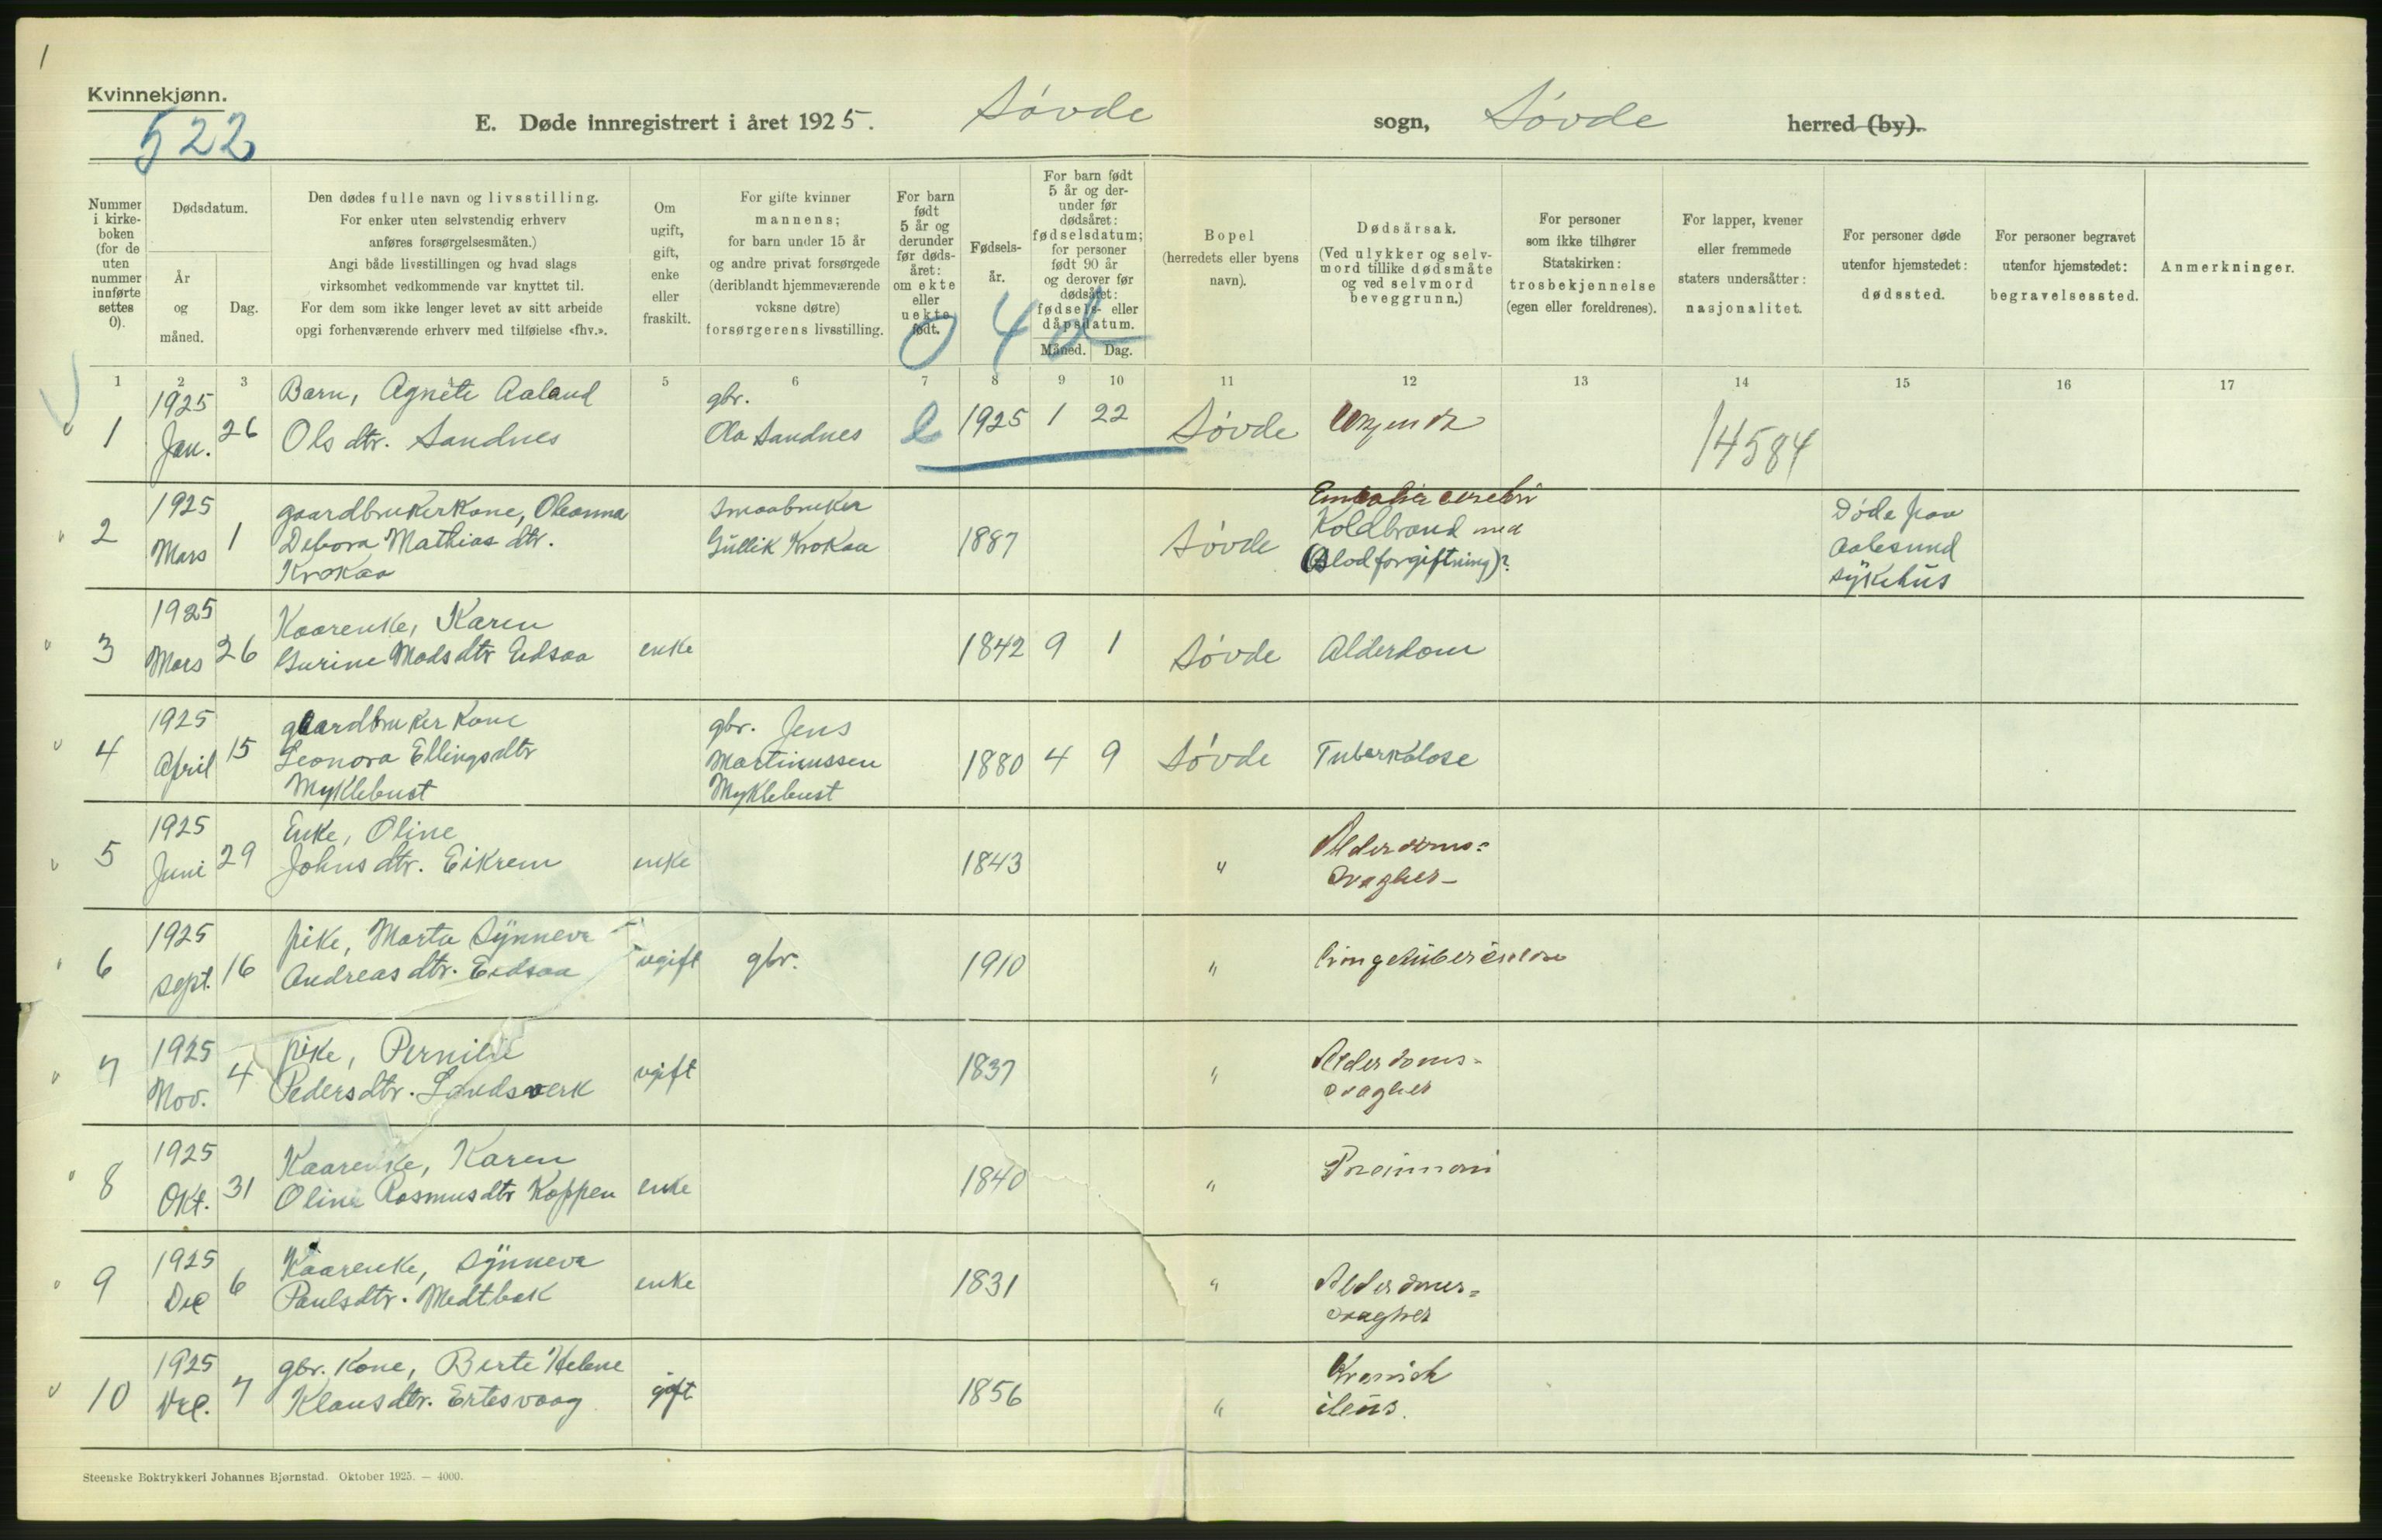 1
Kvinnekjønn.
522
E. Døde innregistrert i året 1925. Søvde sogn, Søvde herred (by).
Nummer i kirke-boken (for de uten nummer innførte settes 0).
Dødsdatum.
År og måned.
Dag.
Den dødes fulle navn og livsstilling.
For enker uten selvstendig erhverv
anføres forsørgelsesmåten.)
Angi både livsstillingen og hvad slags
virksomhet vedkommende var knyttet til.
For dem som ikke lenger levet av sitt arbeide
opgi forhenværende erhverv med tilføielse «fhv.».
Om ugift, gift, enke eller fraskilt.
For gifte kvinner
mannens;
for barn under 15 år
og andre privat forsørgede
(deriblandt hjemmeværende
voksne døtre)
forsørgerens livsstilling.
For barn født 5 år og derunder før døds-året: om ekte eller uekte født.
Fødsels-år.
For barn født 5 år og der-under før dødsåret: fødselsdatum; for personer født 90 år og derover før dødsåret: fødsels- eller dåpsdatum.
Måned. Dag.
Bopel
(herredets eller byens
navn).
Dødsårsak.
(Ved ulykker og selv-
mord tillike dødsmåte
og ved selvmord
beveggrunn.)
For personer
som ikke tilhører
Statskirken:
trosbekjennelse
(egen eller foreldrenes).
For lapper, kvener
eller fremmede
staters undersåtter:
nasjonalitet.
For personer døde
utenfor hjemstedet:
dødssted.
For personer begravet
utenfor hjemstedet:
begravelsessted.
Anmerkninger.
0 4 d
1 2 3 4 5 6 7 8 9 10 11 12 13 14 15 16 17
1 1925 Jan. 26 Barn, Agnete Aaland
Ols dtr. Sandnes
gbr.
Ola Sandnes
e 1925 1 22 Søvde
14584
2 1925 Mars 1 gaardbrukerkone, Oleanna
Debora Mathias dtr.
Krokaa
Smaabruker
Gullik Krokaa
1887 Søvde
Embolia cerebri
Koldbrand med
(Blodforgiftning)?
Døde paa
Aalesund
sykehus
3 1925 Mars 26 Kaarenke, Karen
Gurine Mads dtr Eidsaa
enke 1842 9 1 Søvde Alderdom
4 1925 April 15 gaardbruker kone
Leonora Ellingsdtr
Myklebust
gbr. Jens
Martinussen
Myklebust
1880 4 9 Søvde Tuberkolose
5 1925 Juni 29 Enke, Oline
Johns dtr. Eikrem
enke 1843 "
Alderdoms-
svaghet
6 1925 Sept. 16 pike, Marta Synneva
Andreas dtr. Eidsaa
ugift gbr. 1910 "
7 1925 Nov. 4 pike, Pernille
Pedersdtr. Landsverk
ugift 1837 "
Alderdoms-
svaghet
8 1925 Okt. 31 Kaarenke, Karen
Oline Rasmusdtr Koppen
enke 1840 "
9 1925 Dec 6 Kaarenke, Synneva
Paulsdtr. Medtbak
enke 1831 "
Alderdoms-
svaghet
10 1925 Dec. 7 gbr. kone, Berte Helene
Klausdtr. Ertesvaag
gift 1856 "
Kronisk
ileus.
Steenske Boktrykkeri Johannes Bjørnstad. Oktober 1925. — 4000.